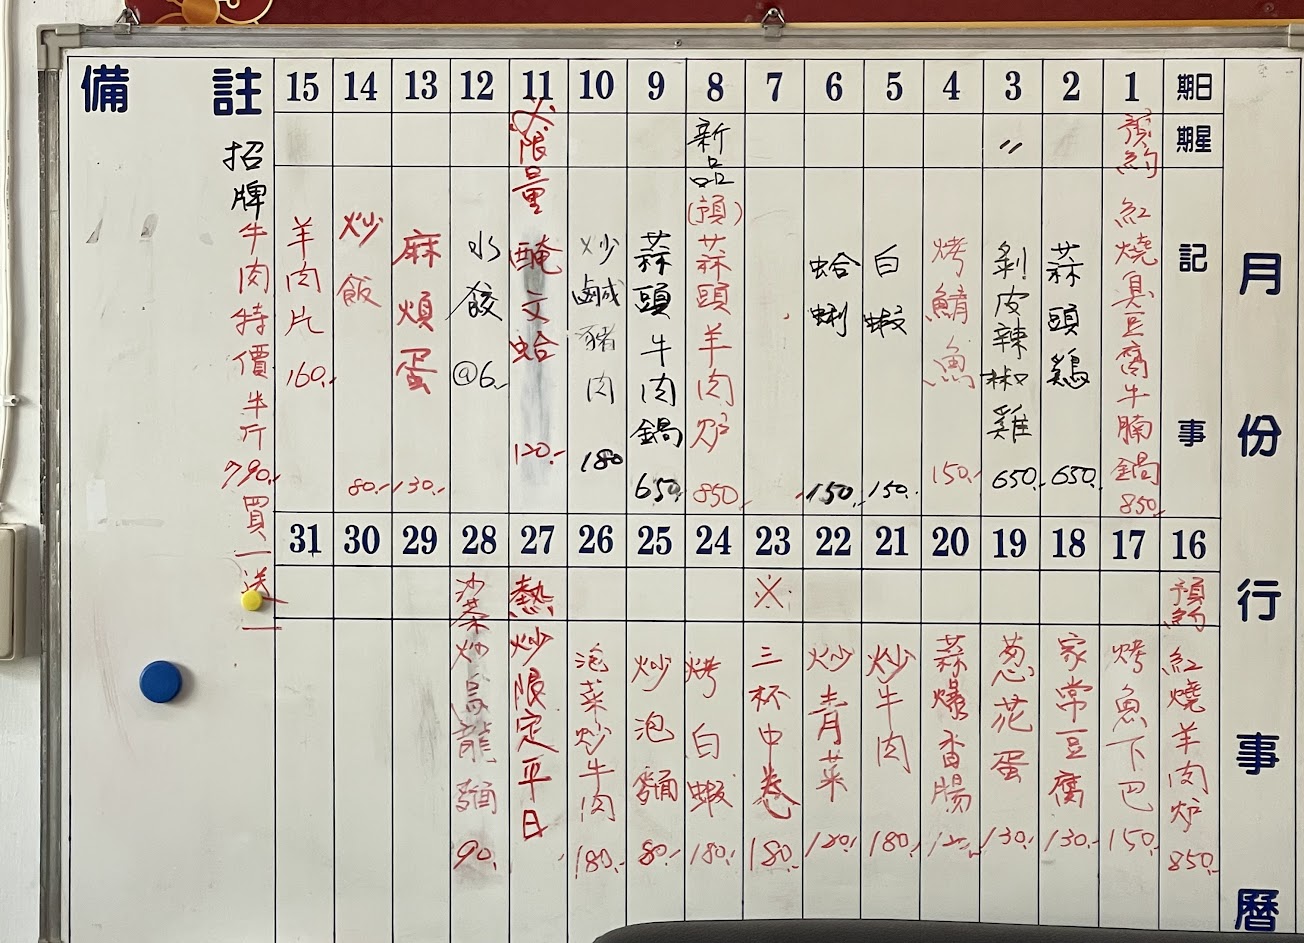 月份行事曆
日期
星期
記事
1
預約 紅燒臭豆腐牛腩鍋 850.-
2
蒜頭鷄 650.-
3
〃
剝皮辣椒雞 650.-
4
烤鯖魚 150.-
5
白蝦 150.-
6
蛤蜊 150.-
7
8
新品(預)蒜頭羊肉炉 850.-
9
蒜頭牛肉鍋 650.-
10
炒鹹豬肉 180
11
限量 醃文蛤 120.-
12
水餃 @6.-
13
麻煩蛋 130.-
14
炒飯 80.-
15
羊肉片 160.-
16
預約 紅燒羊肉炉 850.-
17
烤魚下巴 150.-
18
家常豆腐 130.-
19
葱花蛋 130.-
20
蒜爆香腸 120.-
21
炒牛肉 180.-
22
炒青菜 120.-
23
※
三杯中卷 180.-
24
烤白蝦 180.-
25
炒泡麵 80.-
26
泡菜炒牛肉 180.-
27
熱炒限定平日
28
沙茶炒烏龍麵 90.-
29
30
31
備註
招牌牛肉特價半斤790.-買一送一